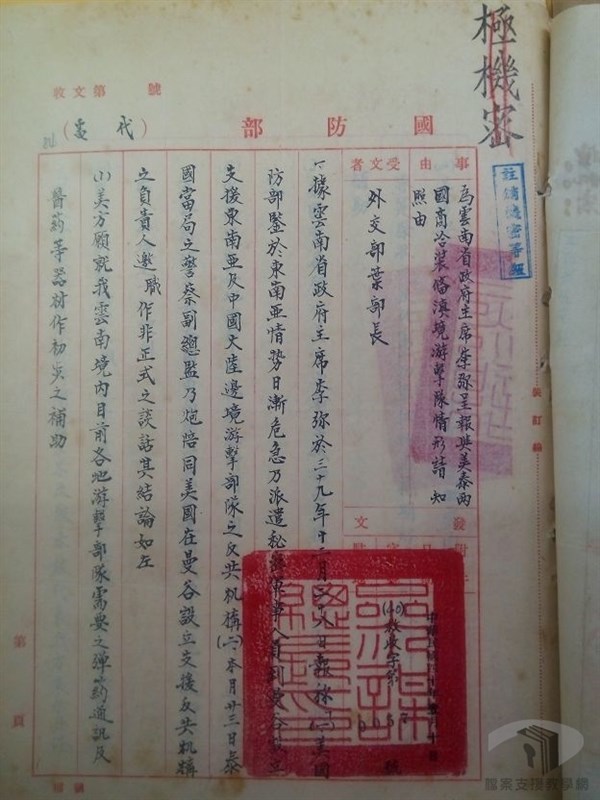 極機密
註銷機密等級
號第文收
國防部
(代電)
事由
為雲南省政府主席李彌呈報與美泰兩
國商洽裝備滇境游擊隊情形請 知
照由
受文者
外交部葉部長
發文
(40)
字第
號
一、據雲南省政府主席李彌於三十九年十一月二十八日報稱(一)美國
防部鑒於東南亞情勢日漸危急乃派遣秘密軍事人員到曼谷設立
支援東南亞及中國大陸邊境游擊部隊之反共機構(二)本月廿三日泰
國當局之警察副總監乃炮陪同美國在曼谷設立支援反共機構
之負責人邀職作非正式之談話其結論如左
(1)美方願就我雲南境內目前各地游擊部隊需要之彈葯通訊及
醫葯等器材作初次之補助
裝訂線
第 頁
檔案支援教學網